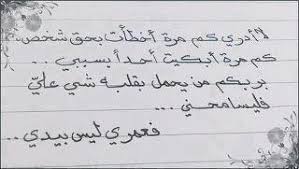 لا أدري كم مرة أخطأت بحق شخص..
كم مرة أبكيت أحداً بسببي..
بربكم من يحمل بقلبه شي عليّ
فليسامحني ...
فعمري ليس بيدي ..